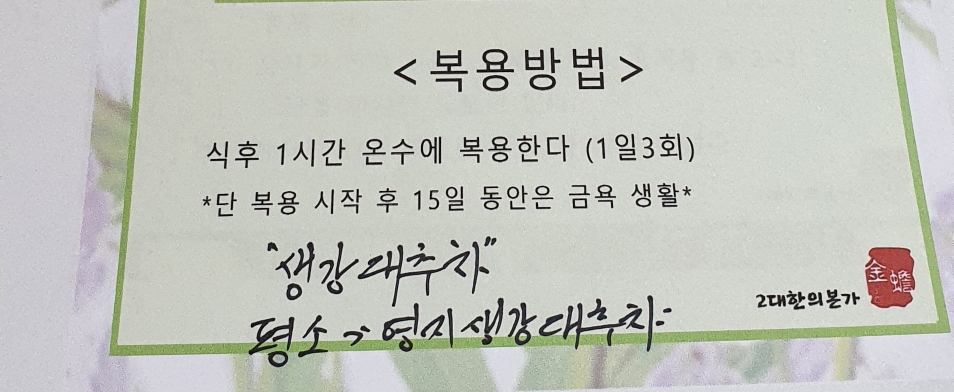 <복용방법>
식후 1시간 온수에 복용한다 (1일3회)
*단 복용 시작 후 15일 동안은 금욕 생활*
"생강대추차"
평소 → 영지생강대추차-
2대한의본가
金蟾